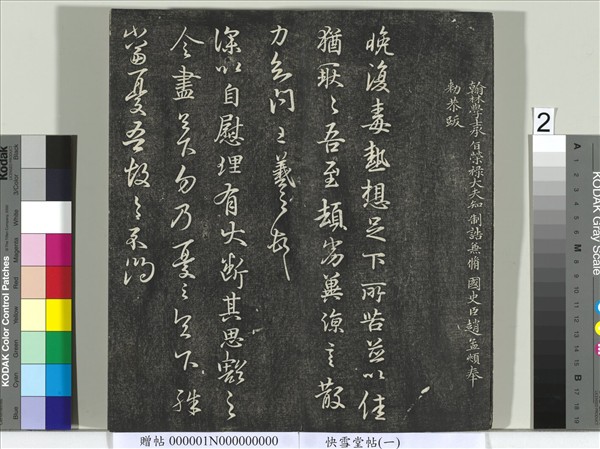 翰林學士承旨榮祿大夫知制誥兼脩國史臣趙孟頫奉
勅恭跋
晚復毒熱想足下所苦並以佳
猶耿耿吾至頓劣冀涼言散
力知問王羲之頓首
深以自慰理有大斷其思豁之
令盡足下勿乃憂憂足下殊
當憂吾故
2
KODAK Color Control Patches
Blue
Cyan
Green
Yellow
Red
Magenta
White
3/Color
Black
KODAK Gray Scale
A 1 2 3 4 5 6 M 8 9 10 11 12 13 14 15 B 17 18 19
贈帖 000001N000000000
快雪堂帖(一)